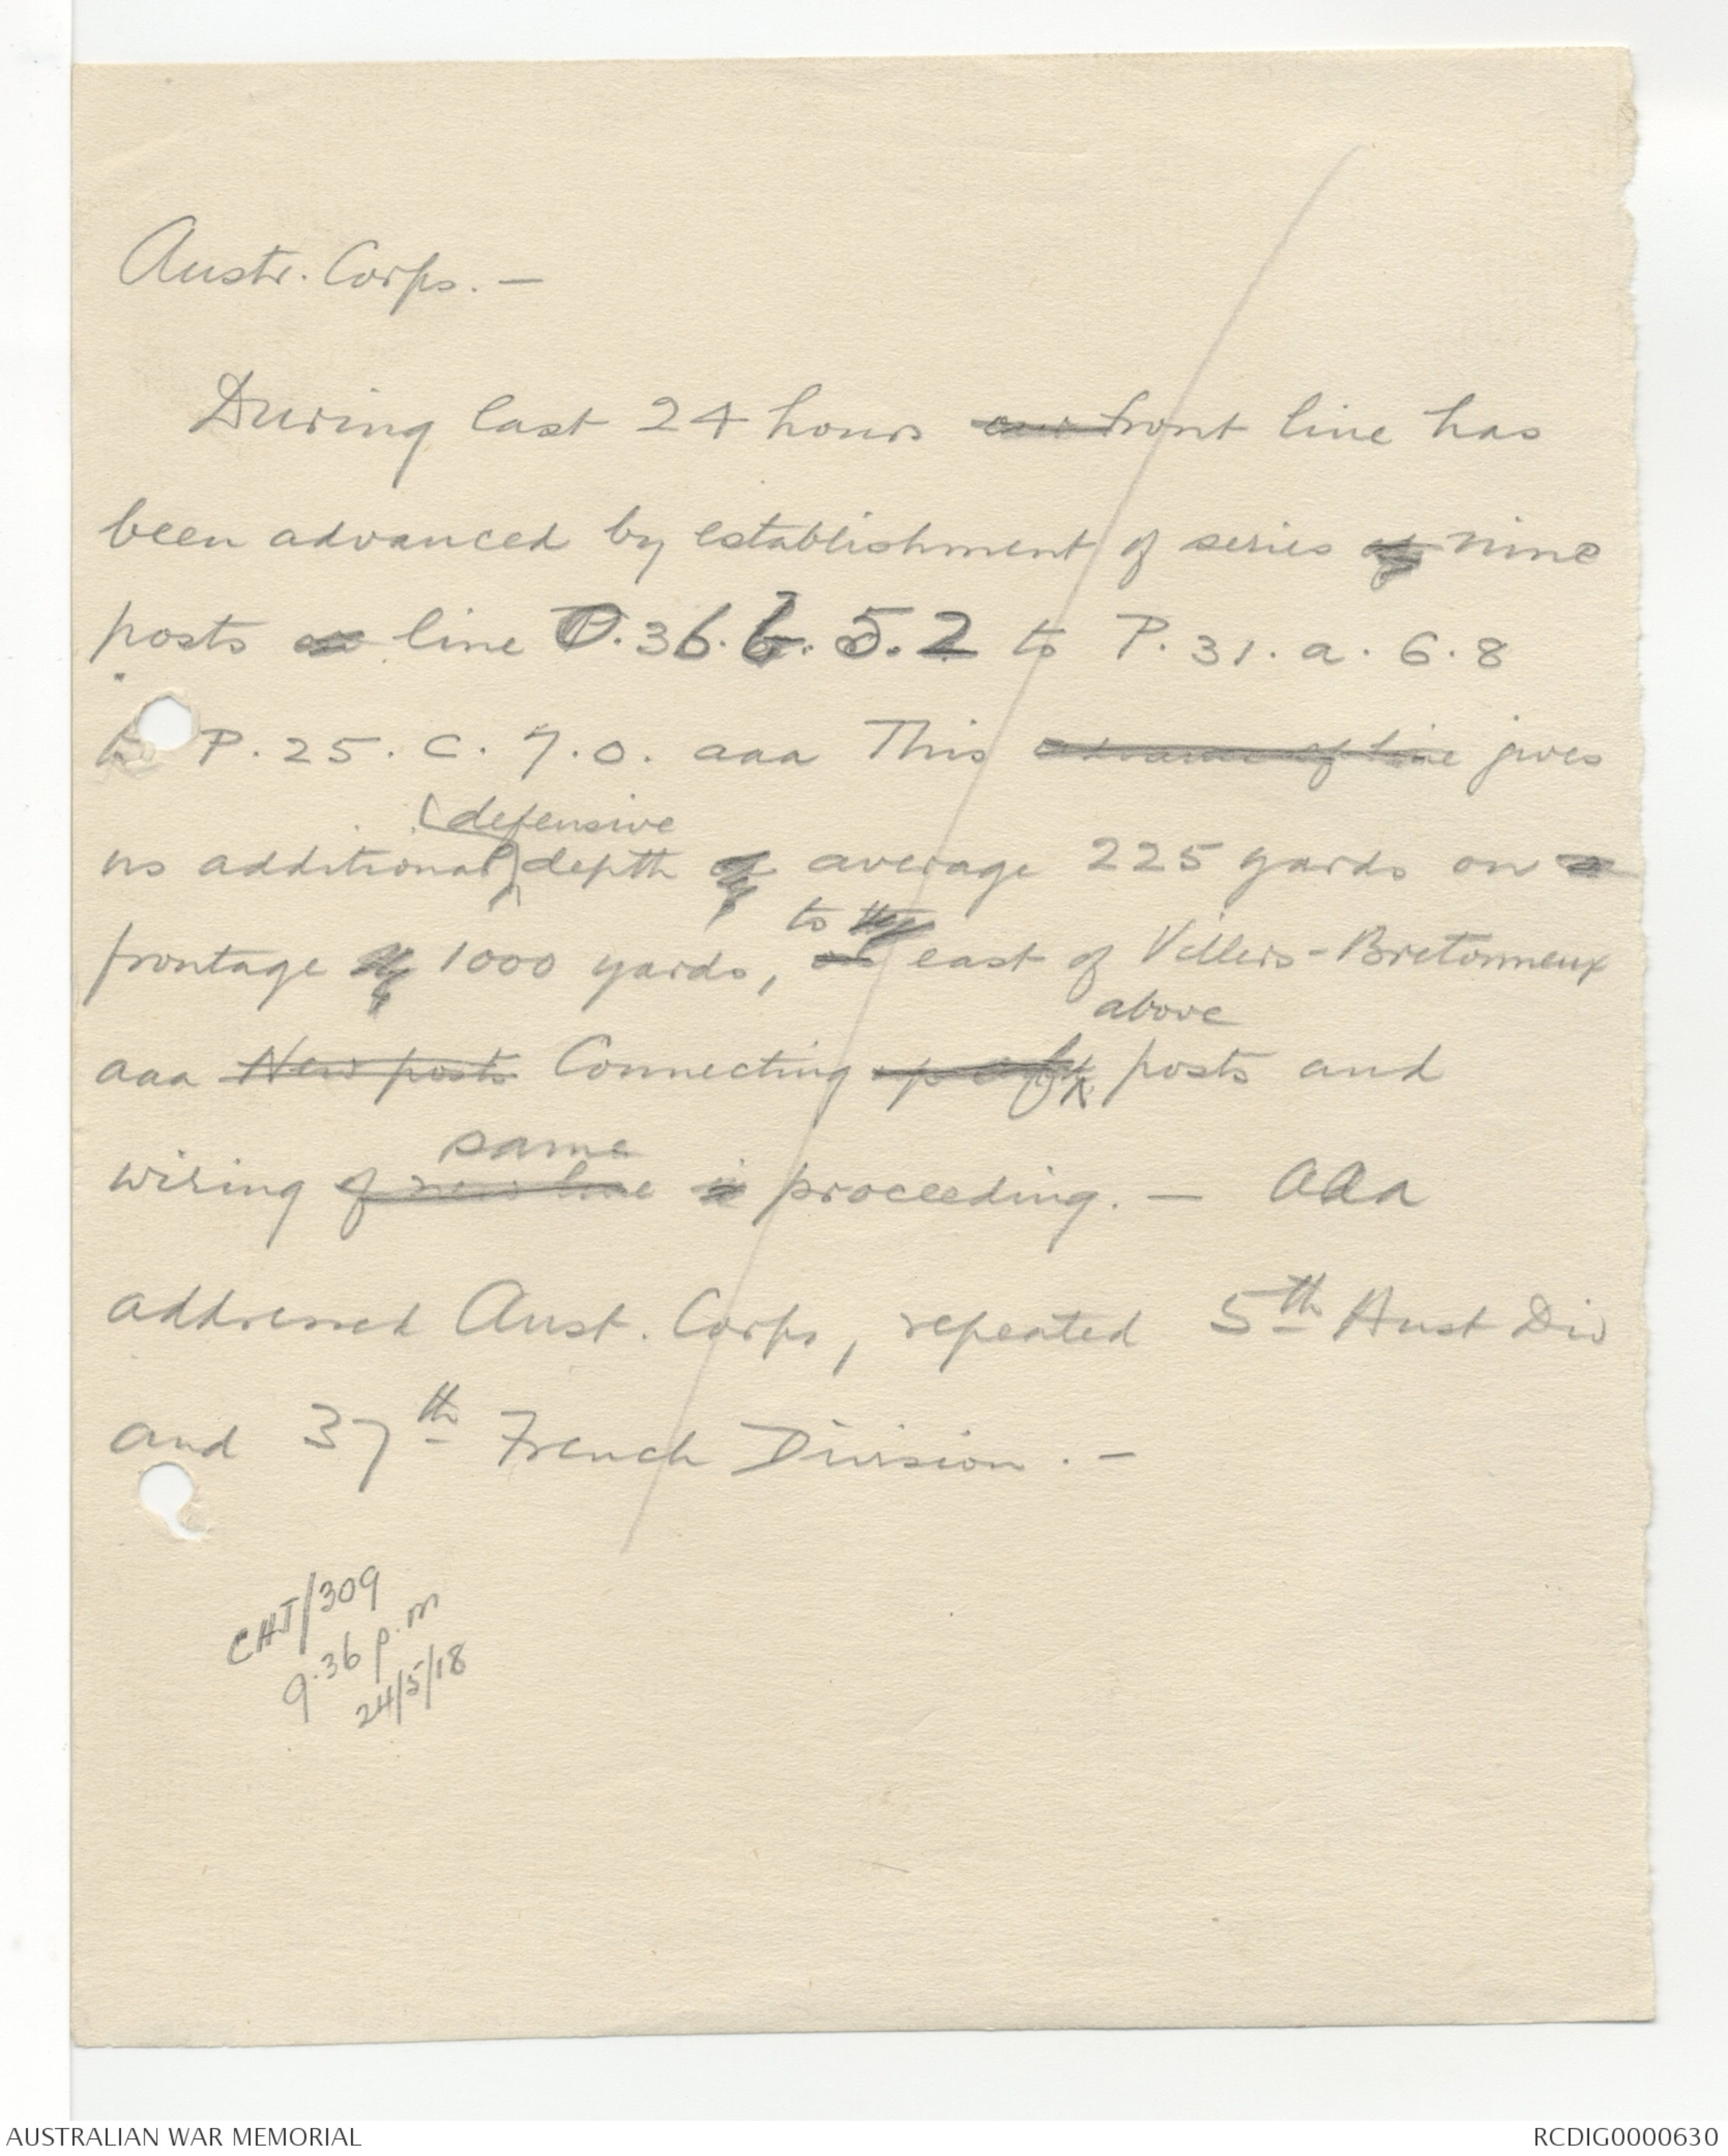 Austr. Corps. —
During last 24 hours our front line has
been advanced by establishment of series of nine
posts on line O.36.b.5.2 to P.31.a.6.8
to P.25.C.7.0. aaa This advance of line gives
defensive
us additional depth of average 225 yards on a
to the
frontage of 1000 yards, east of Villers-Bretonneux
above
aaa New posts Connecting up of posts and
same
wiring of new line is proceeding. — aaa
addressed Aust. Corps, repeated 5th Aust Div
and 37th French Division. —
CHT/309
9.36 p.m
24/5/18
AUSTRALIAN WAR MEMORIAL
RCDIG0000630